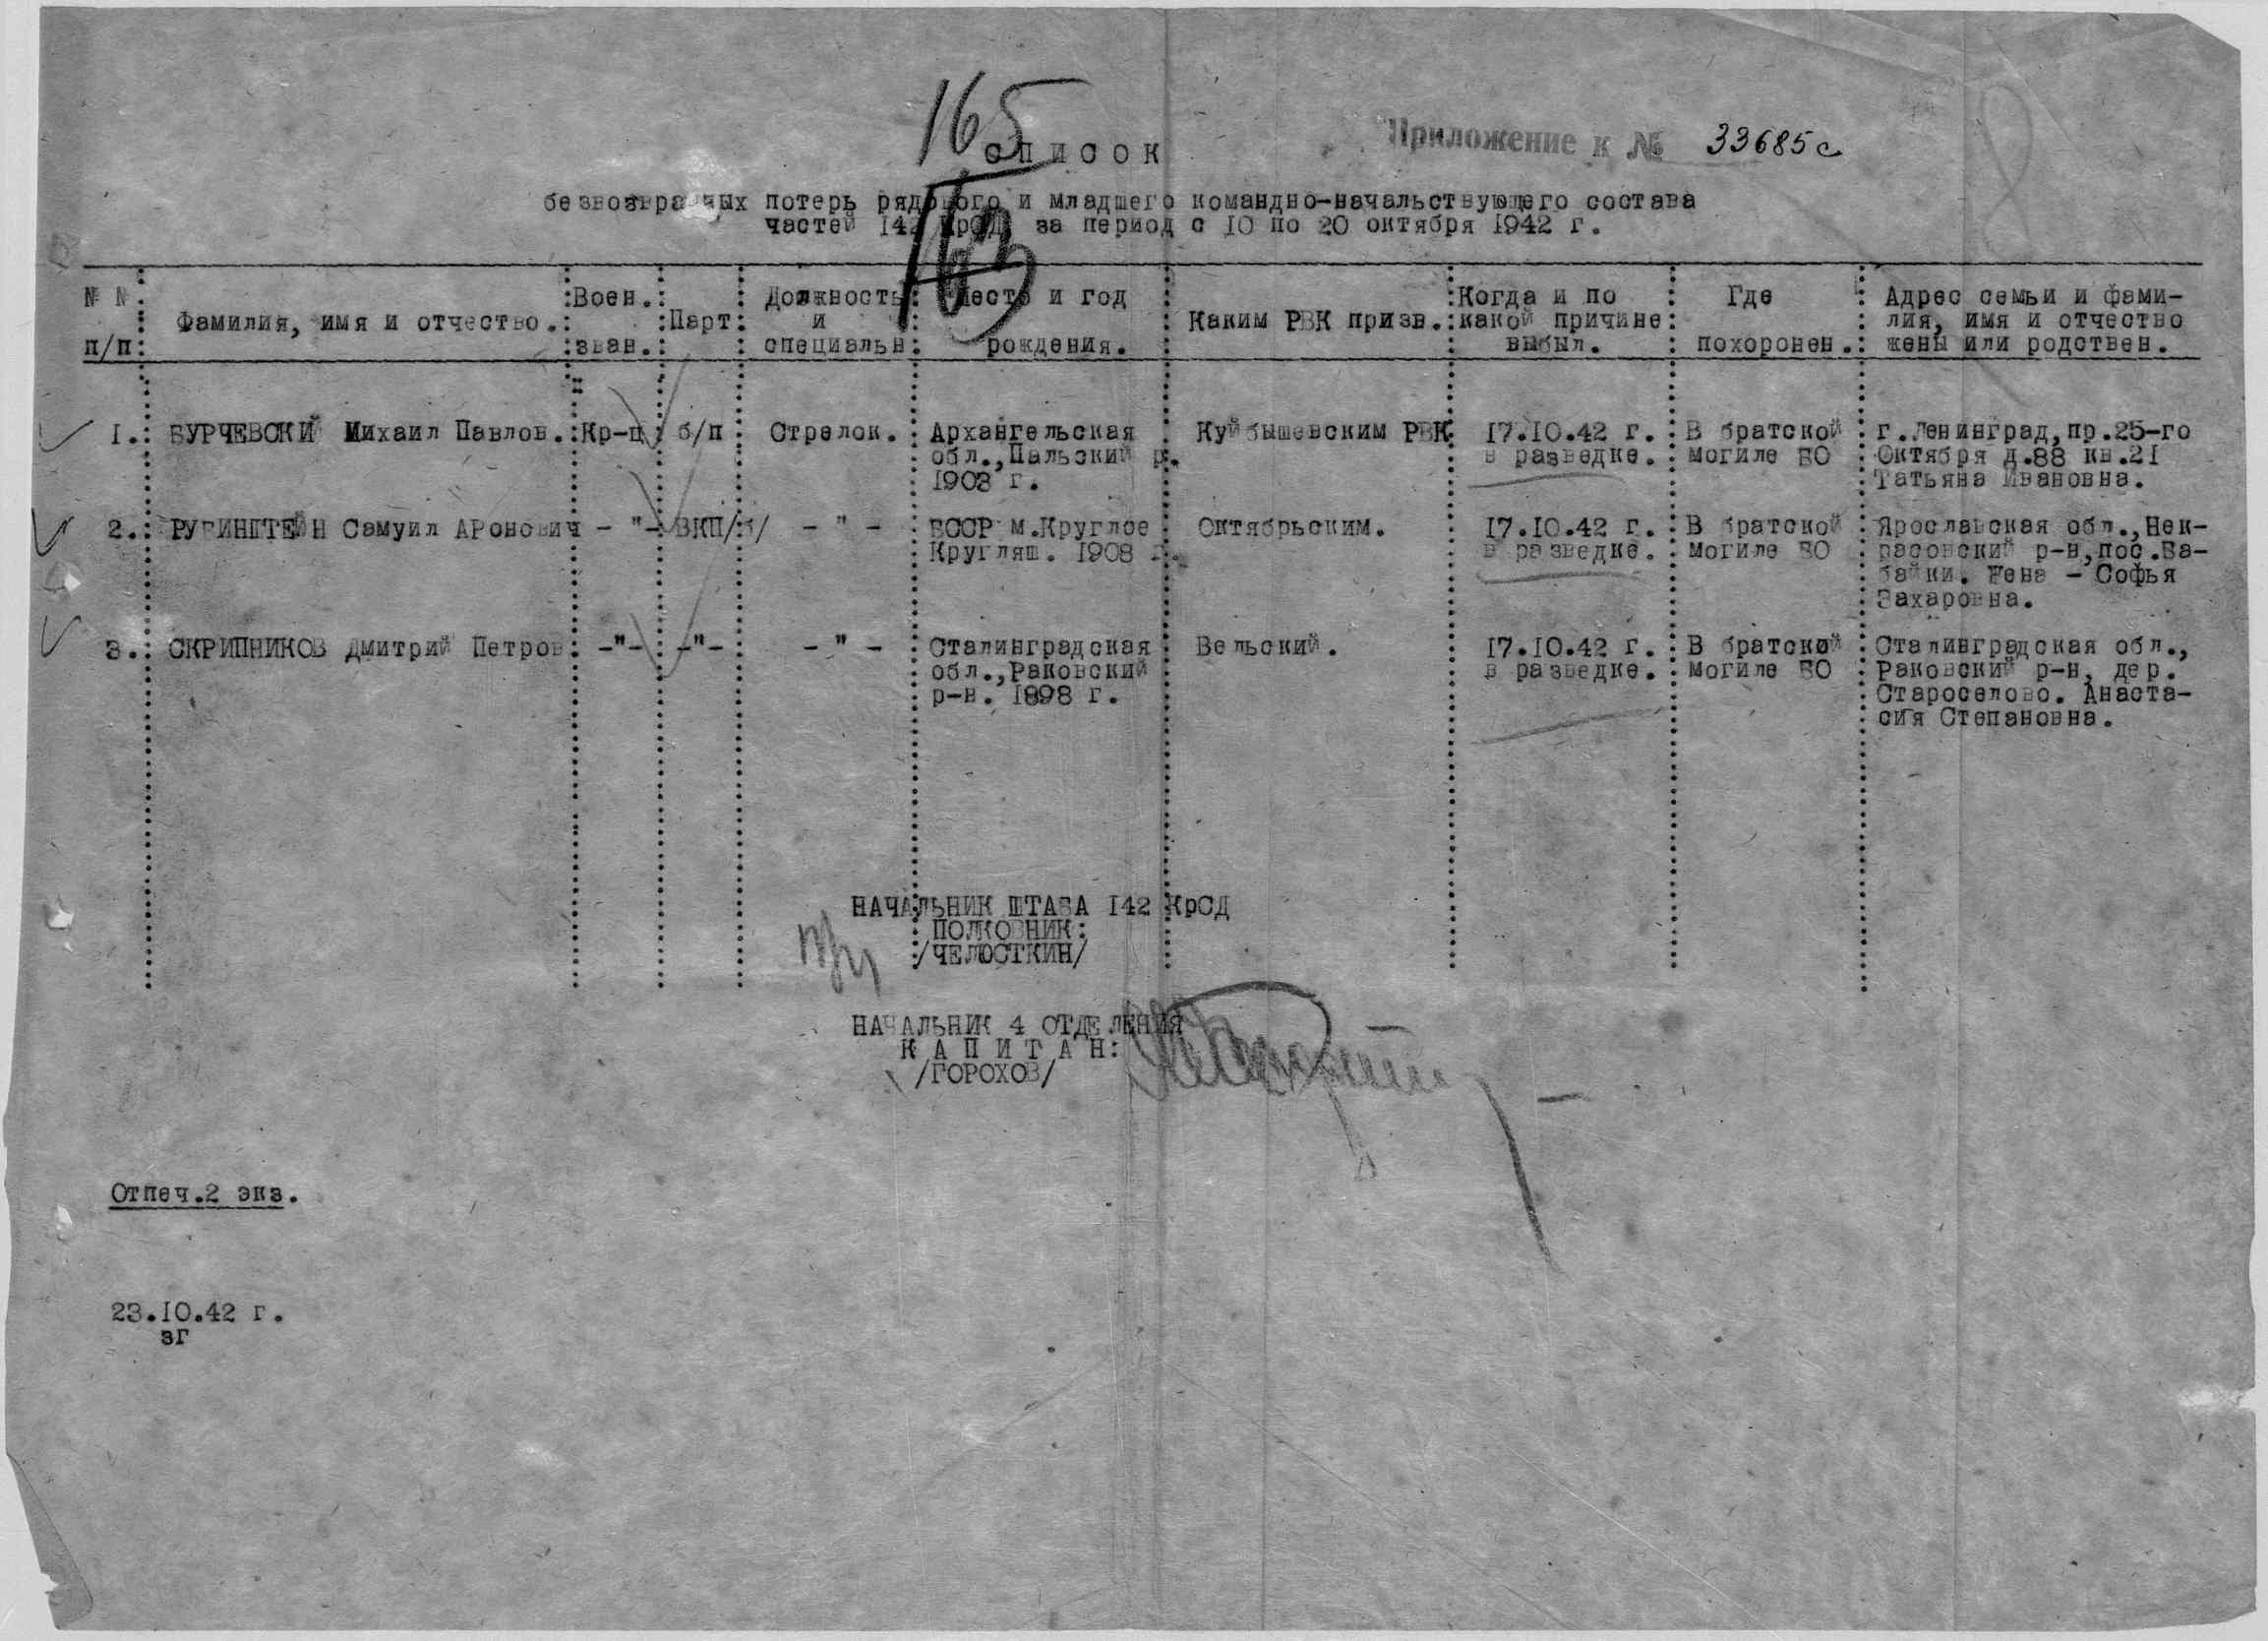 165
СПИСОК
Приложение к № 33685с
безвозвратных потерь рядового и младшего командно-начальствующего состава
частей 142 КрСД за период с 10 по 20 октября 1942 г.
№ №
п/п
Фамилия, имя и отчество.
Воен.
зван.
Парт
Должность
и
специальн
Место и год
рождения.
Каким РВК призв.
Когда и по
какой причине
выбыл.
Где
похоронен.
Адрес семьи и фами-
лия, имя и отчество
жены или родствен.
1. БУРЧЕВСКИЙ Михаил Павлов. Кр-ц б/п Стрелок. Архангельская Куйбышевским РВК 17.10.42 г. В братской г.Ленинград,пр.25-го
обл., р. в разведке. могиле ВО Октября д.88 кв.21
1903 г. Татьяна Ивановна.
2. РУБИНШТЕЙН Самуил АРонович - " - ВКП/б/ - " - БССР м.Круглое Октябрьским. 17.10.42 г. В братской Ярославская обл.,Нек-
Кругляш. 1908 г. в разведке. могиле ВО расовский р-н,пос.Ба-
байки. Жена - Софья
Захаровна.
3. СКРИПНИКОВ Дмитрий Петров -"- -"- - " - Сталинградская Вельский. 17.10.42 г. В братской Сталинградская обл.,
обл.,Раковский в разведке. могиле ВО Раковский р-н, дер.
р-н. 1898 г. Староселово. Анаста-
сия Степановна.
НАЧАЛЬНИК ШТАБА 142 КрСД
ПОЛКОВНИК:
/ЧЕЛЮСТКИН/
НАЧАЛЬНИК 4 ОТДЕЛЕНИЯ
К А П И Т А Н:
/ГОРОХОВ/
Отпеч.2 экз.
23.10.42 г.
зг